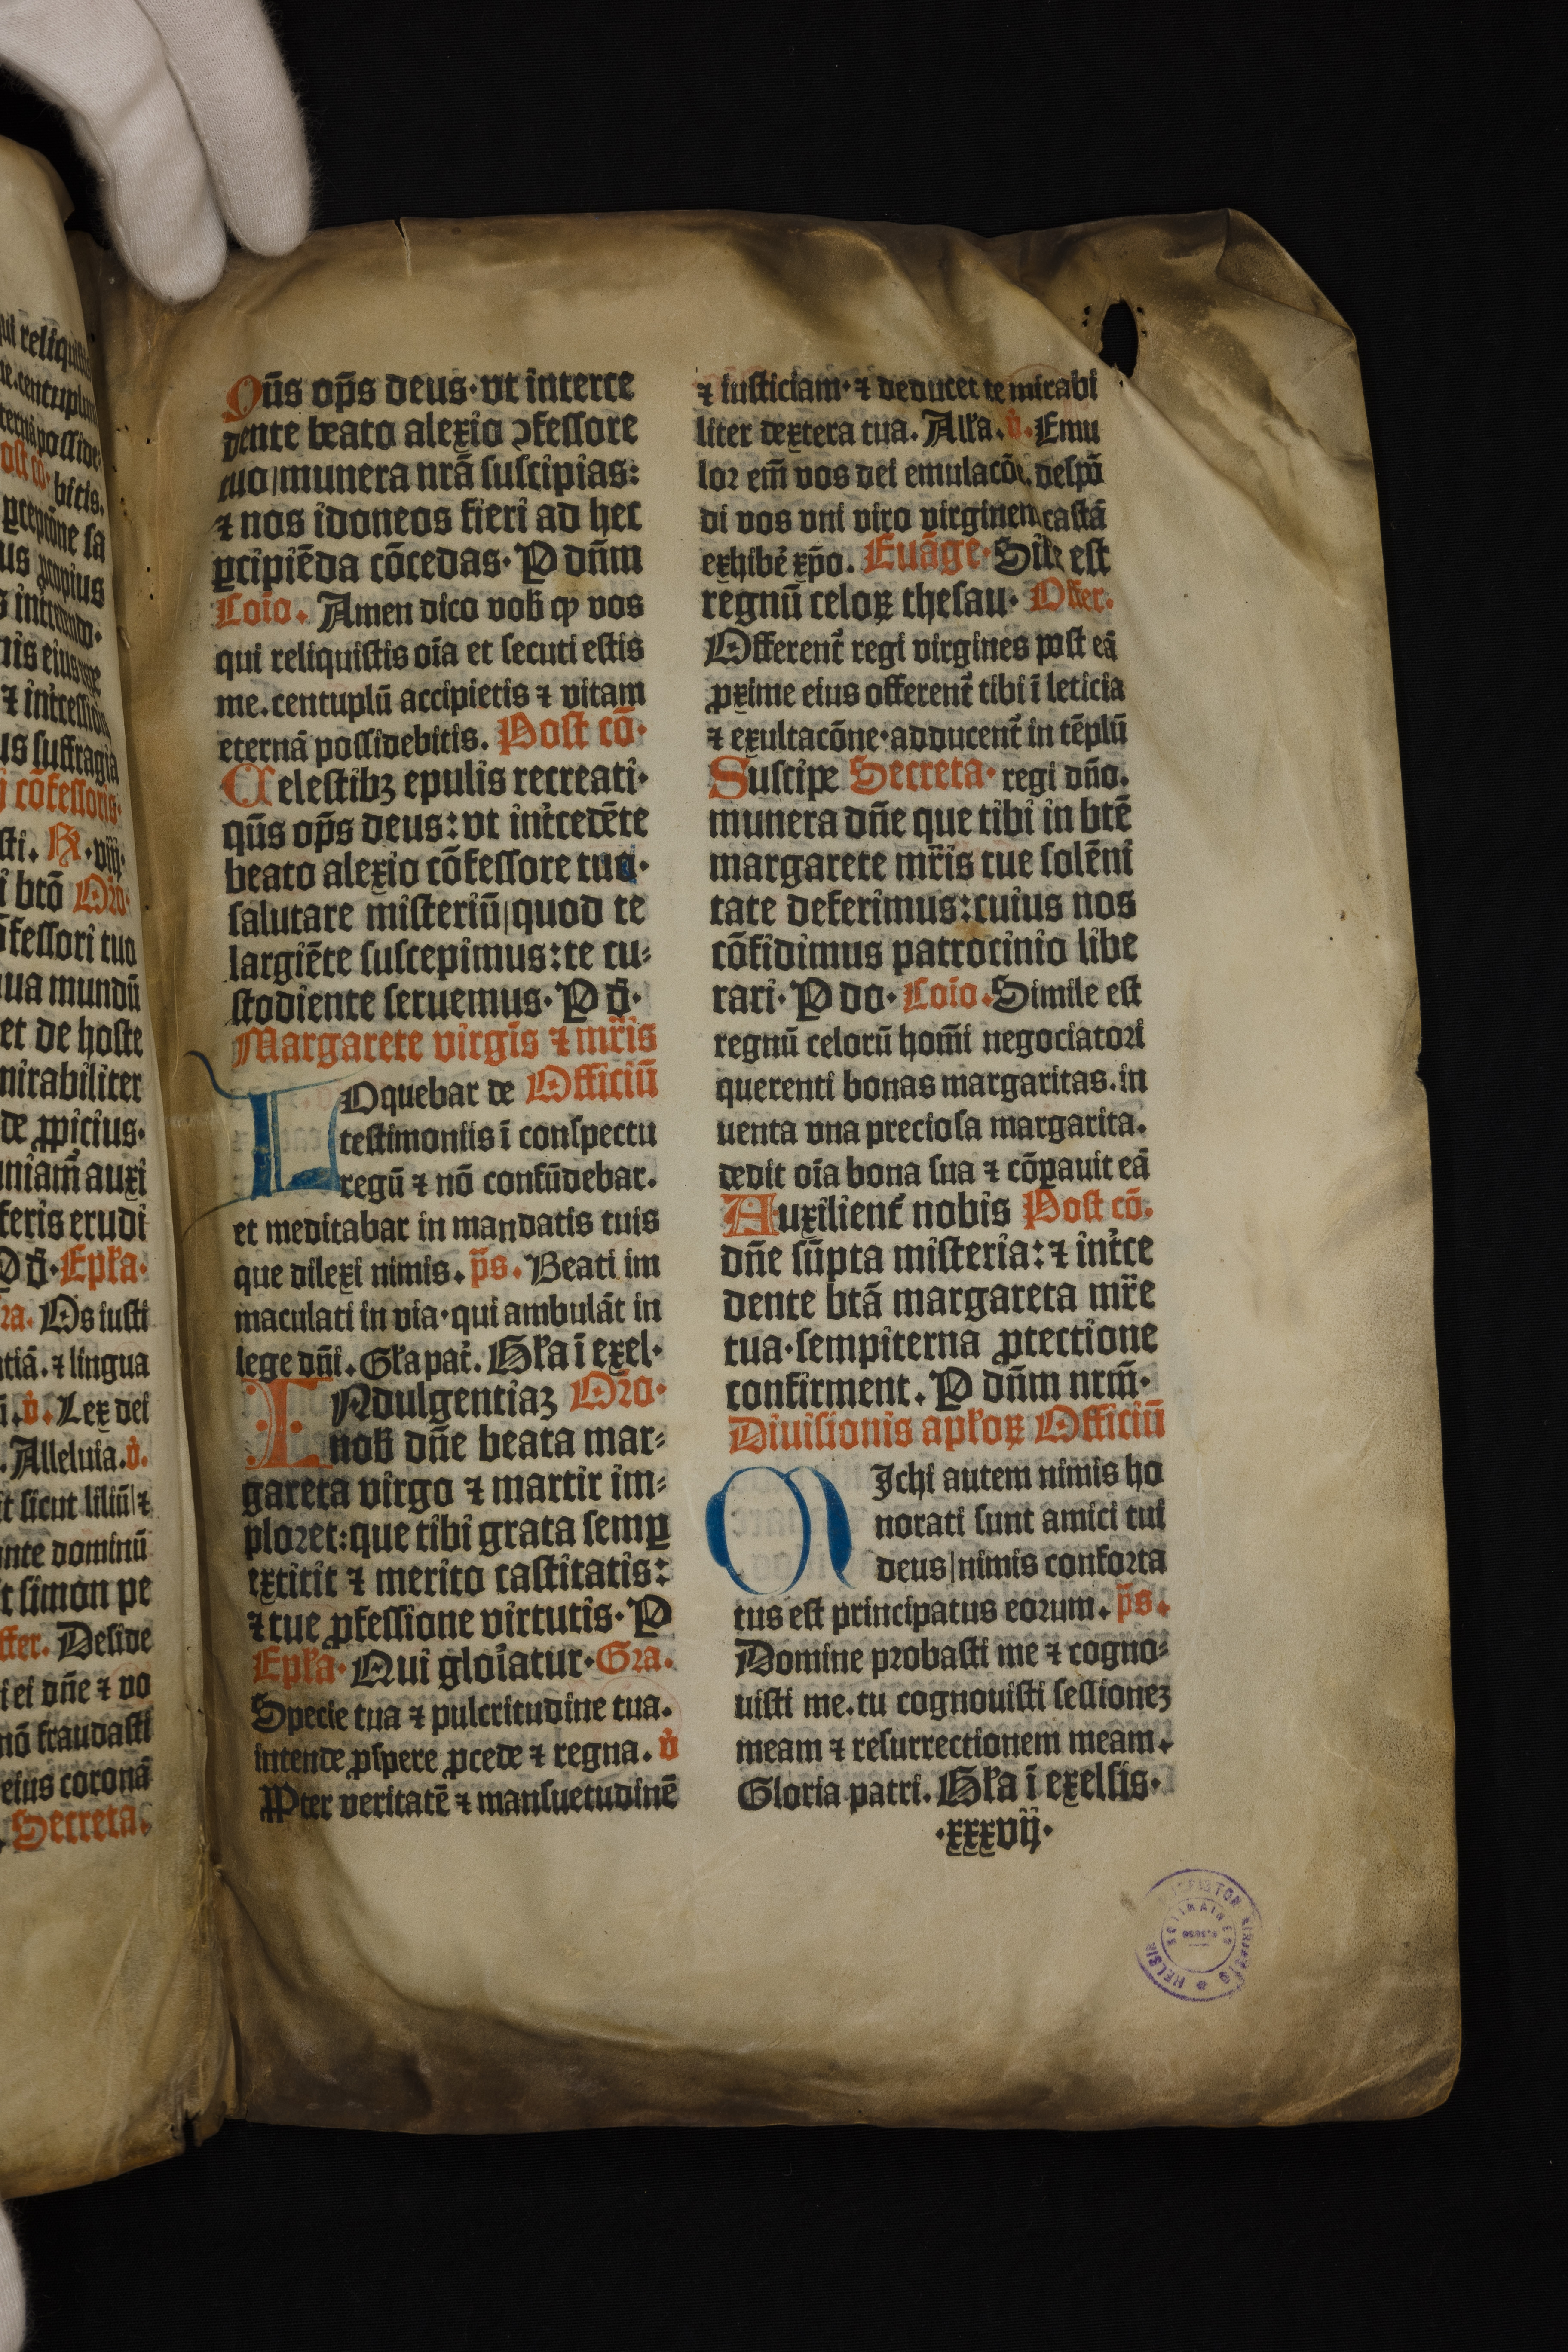 qui reliquistis
me.centuplum
ternā posside
ost cō. bitis.
ꝑcepcōne sa
us propius
s intrando.
nis eius
⁊ intercessiōe
us suffragia
j cōfessoris.
sti. R .viij.
i btō Oro.
ōfessori tuo
ua mundū
et de hoste
mirabiliter
de ꝓpicius.
uniam̄ auxi
feris erudi
P d̄. Epła.
ra. Os iusti
ntiā. ⁊ lingua
ū. v̇. Lex dei
. Alleluia. v̇.
it sicut liliū ⁊
nte dominū
t simon pe
ffer. Deside
i ei dn̄e ⁊ vo
nō fraudasti
eius coronā
. Secreta.
Qūs op̄s deus. vt interce
dente beato alexio ꝯfessore
tuo munera nrā suscipias:
⁊ nos idoneos fieri ad hec
ꝑcipiēda cōcedas. P dn̄m
Coīo. Amen dico vob̄ ꝙ vos
qui reliquistis oīa et secuti estis
me.centuplū accipietis ⁊ vitam
eternā possidebitis. Post cō.
Celestibꝫ epulis recreati.
qūs op̄s deus: vt int̄cedēte
beato alexio cōfessore tuo.
salutare misteriū quod te
largiēte suscepimus: te cu⸗
stodiente seruemus. P d̄.
Margarete virgīs ⁊ mr̄is
LOquebar de Officiū
testimoniis ī conspectu
regū ⁊ nō confūdebar.
et meditabar in mandatis tuis
que dilexi nimis. p̄s. Beati im
maculati in via. qui ambulāt in
lege dn̄i. Gła pat̄. Gła ī exel.
INdulgentiaꝫ Oro.
nob̄ dn̄e beata mar⸗
gareta virgo ⁊ martir im⸗
ploret: que tibi grata semꝑ
extitit ⁊ merito castitatis:
⁊ tue ꝓfessione virtutis. P
Epła. Qui gloīatur. Gra.
Specie tua ⁊ pulcritudine tua.
intende ꝓspere ꝓcede ⁊ regna. v̇
PPter veritatē ⁊ mansuetudinē
⁊ iusticiam. ⁊ deducet te mirabi
liter dextera tua. Alła. v̇. Emu
lor em̄ vos dei emulacōe. despō
di vos vni viro virginem castā
exhibē xp̄o. Euāge. Sile est
regnū celoꝝ thesau. Offer.
Offerent̄ regi virgines post eā
ꝓxime eius offerent̄ tibi ī leticia
⁊ exultacōne. adducent̄ in tēplū
Suscipe Secreta. regi dn̄o.
munera dn̄e que tibi in btē
margarete mr̄is tue solēni
tate deferimus: cuius nos
cōfidimus patrocinio libe
rari. P do. Coīo. Simile est
regnū celorū hom̄i negociatori
querenti bonas margaritas. in
uenta vna preciosa margarita.
dedit oīa bona sua ⁊ cōꝑauit eā
Auxilient̄ nobis Post cō.
dn̄e sūpta misteria: ⁊ int̄ce
dente btā margareta mr̄e
tua. sempiterna ꝓtectione
confirment. P dn̄m nrm̄.
Diuisionis apłoꝝ Officiū
MIchi autem nimis ho
norati sunt amici tui
deus nimis conforta
tus est principatus eorum. p̄s.
Domine probasti me ⁊ cogno⸗
uisti me. tu cognouisti sessioneꝫ
meam ⁊ resurrectionem meam.
Gloria patri. Gła ī exelsis.
.xxxvij.